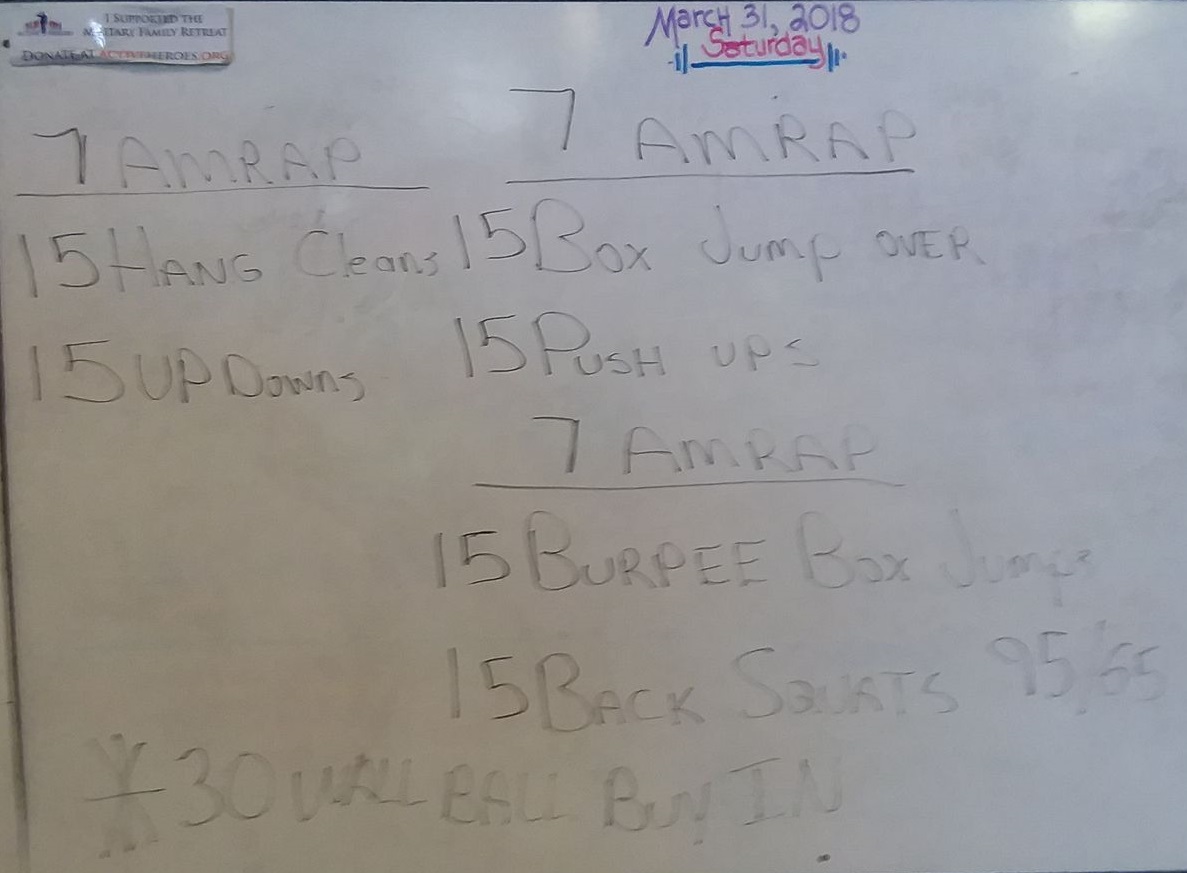 I SUPPORTED THE
MILITARY FAMILY RETREAT
DONATE AT ACTIVEHEROES.ORG
March 31, 2018
Saturday
7 AMRAP
15 HANG Cleans
15 UP Downs
7 AMRAP
15 Box Jump OVER
15 PUSH UPS
7 AMRAP
15 BURPEE Box Jumps
15 BACK SQUATS 95/65
* 30 WALL BALL BUY IN